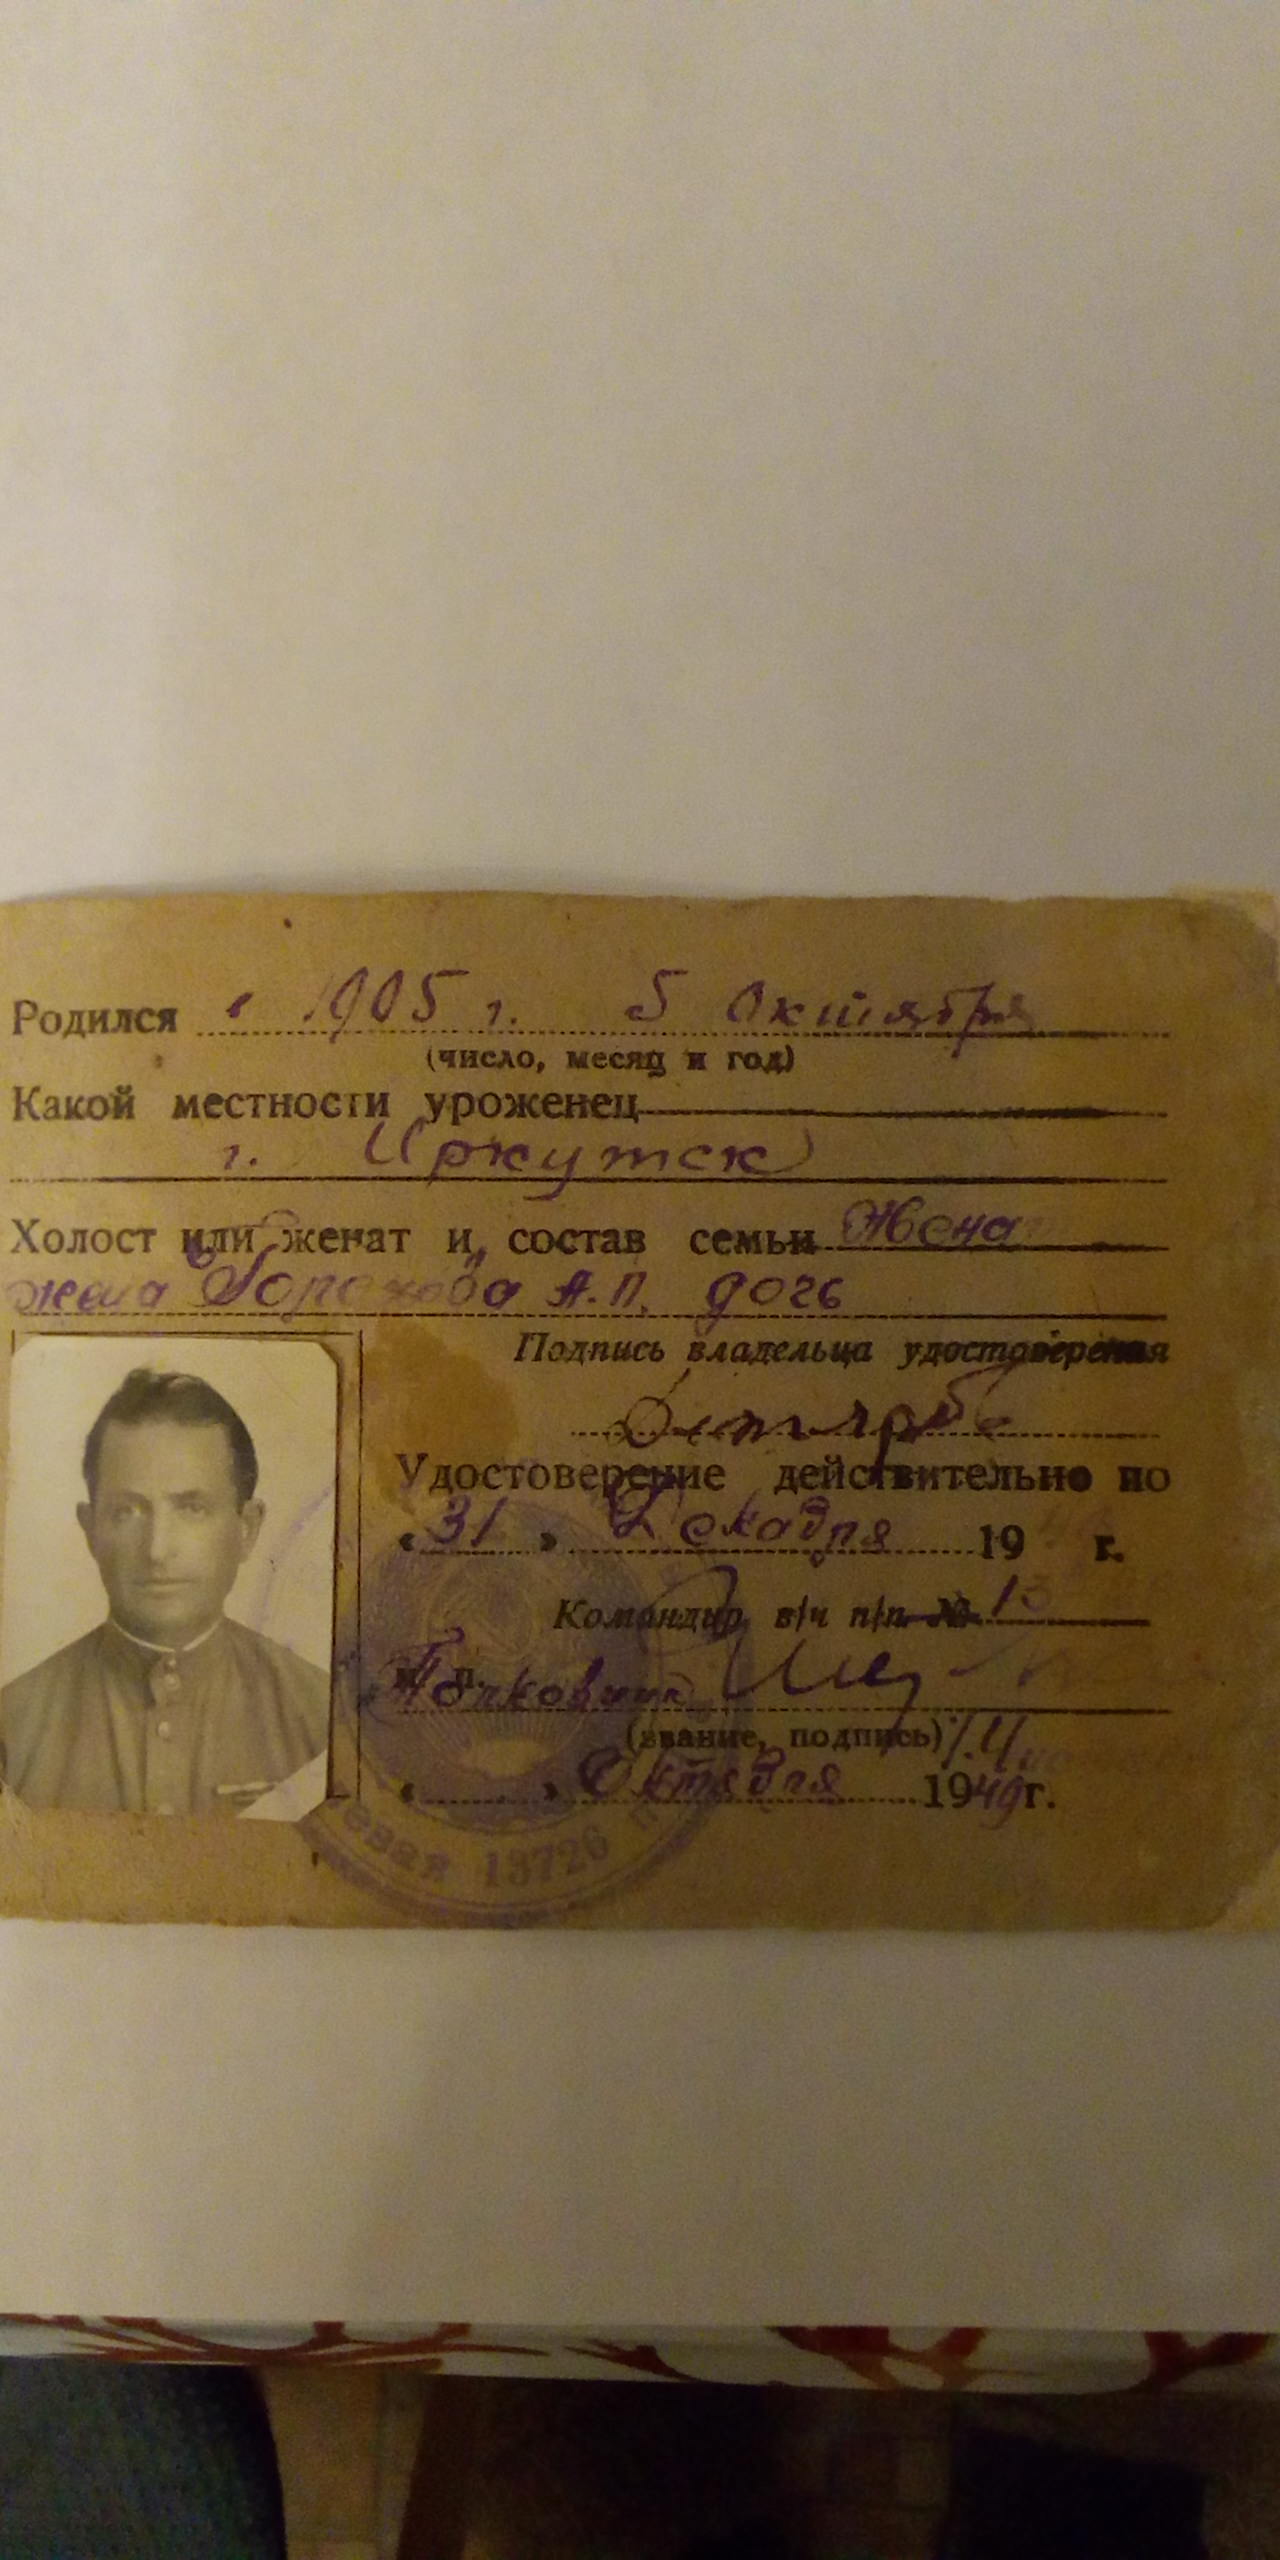 Родился в 1905 г. 5 Октября
(число, месяц и год)
Какой местности уроженец
г. Иркутск
Холост или женат и состав семьи Женат
жена Горохова А.П. дочь
Подпись владельца удостоверения
Удостоверение действительно по
« 31 » Декабря 19 г.
Командир в/ч п/п № 13
м. п. Полковник
(звание, подпись)
« » Октября 1949 г.
евая 13726 п